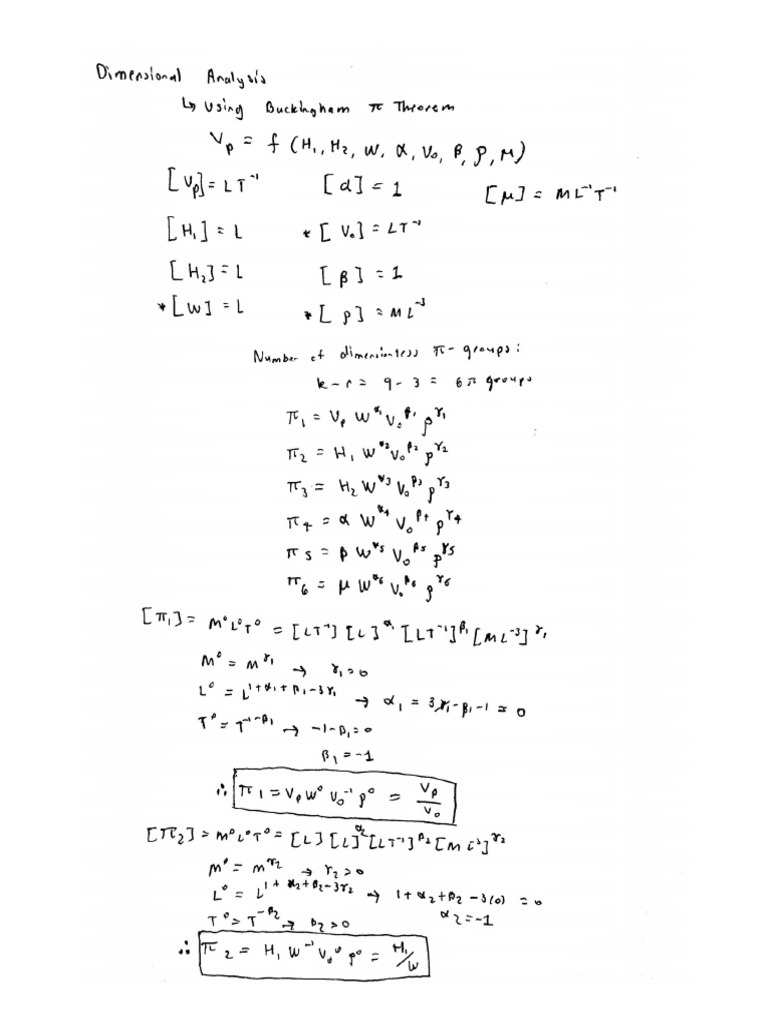 Dimensional Analysis
↳ Using Buckingham π Theorem
V_p = f (H₁, H₂, W, α, V₀, β, ρ, μ)
[V_p] = LT⁻¹ [α] = 1 [μ] = ML⁻¹T⁻¹
[H₁] = L * [V₀] = LT⁻¹
[H₂] = L [β] = 1
* [W] = L * [ρ] = ML⁻³
Number of dimensionless π-groups:
k - r = 9 - 3 = 6 π groups
π₁ = V_p W^α₁ V₀^β₁ ρ^γ₁
π₂ = H₁ W^α₂ V₀^β₂ ρ^γ₂
π₃ = H₂ W^α₃ V₀^β₃ ρ^γ₃
π₄ = α W^α₄ V₀^β₄ ρ^γ₄
π₅ = β W^α₅ V₀^β₅ ρ^γ₅
π₆ = μ W^α₆ V₀^β₆ ρ^γ₆
[π₁] = M⁰L⁰T⁰ = [LT⁻¹] [L]^α₁ [LT⁻¹]^β₁ [ML⁻³]^γ₁
M⁰ = M^γ₁ → γ₁ = 0
L⁰ = L^(1+α₁+β₁-3γ₁) → α₁ = 3γ₁ - β₁ - 1 = 0
T⁰ = T^(-1-β₁) → -1-β₁ = 0
β₁ = -1
∴ π₁ = V_p W⁰ V₀⁻¹ ρ⁰ = V_p/V₀
[π₂] = M⁰L⁰T⁰ = [L] [L]^α₂ [LT⁻¹]^β₂ [ML⁻³]^γ₂
M⁰ = M^γ₂ → γ₂ = 0
L⁰ = L^(1+α₂+β₂-3γ₂) → 1+α₂+β₂-3(0) = 0
T⁰ = T^(-β₂) → β₂ = 0 α₂ = -1
∴ π₂ = H₁ W⁻¹ V₀⁰ ρ⁰ = H₁/W